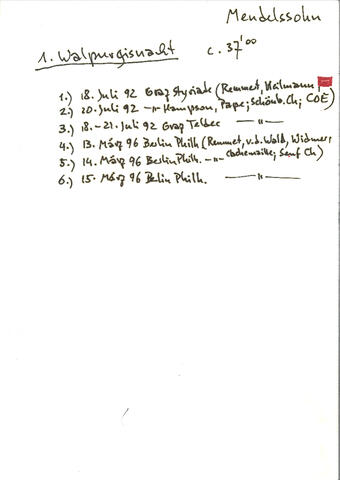 Mendelssohn
1. Walpurgisnacht c. 37'00
1.) 18. Juli 92 Graz Styriade (Remmet, Heilmann
2.) 20. Juli 92 -"- Hampson, Pape; Schönb. Ch; COE)
3.) 18.-21. Juli 92 Graz Teldec -"-
4.) 13. März 96 Berlin Phil (Remmet, v.d. Wald, Widmer,
5.) 14. März 96 Berlin Philh. -"- Cachemaille; Senf Ch)
6.) 15. März 96 Berlin Philh. -"-